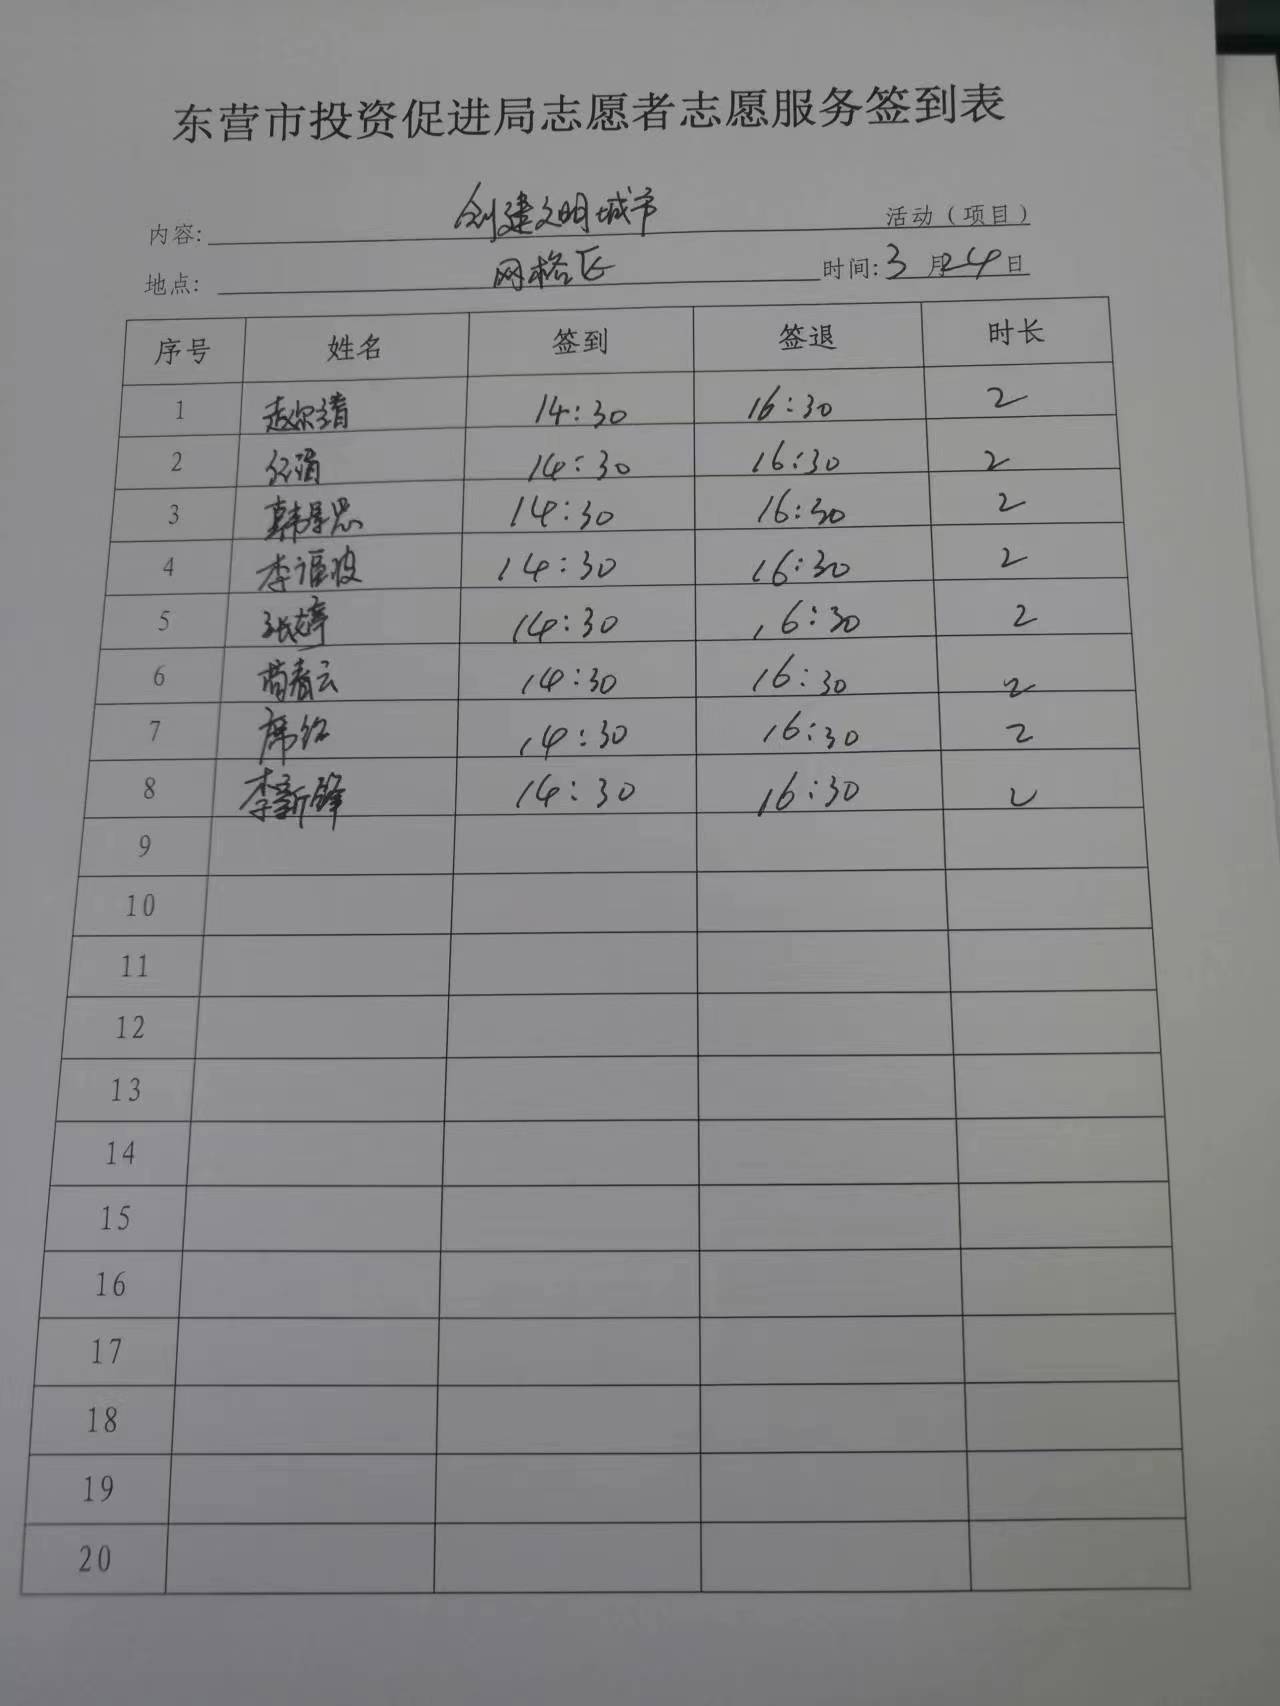 东营市投资促进局志愿者志愿服务签到表
内容: 创建文明城市 活动（项目）
地点: 网格区 时间: 3月24日
序号 姓名 签到 签退 时长
1 14:30 16:30 2
2 14:30 16:30 2
3 14:30 16:30 2
4 14:30 16:30 2
5 张婷 14:30 16:30 2
6 14:30 16:30 2
7 14:30 16:30 2
8 李新锋 14:30 16:30 2
9
10
11
12
13
14
15
16
17
18
19
20